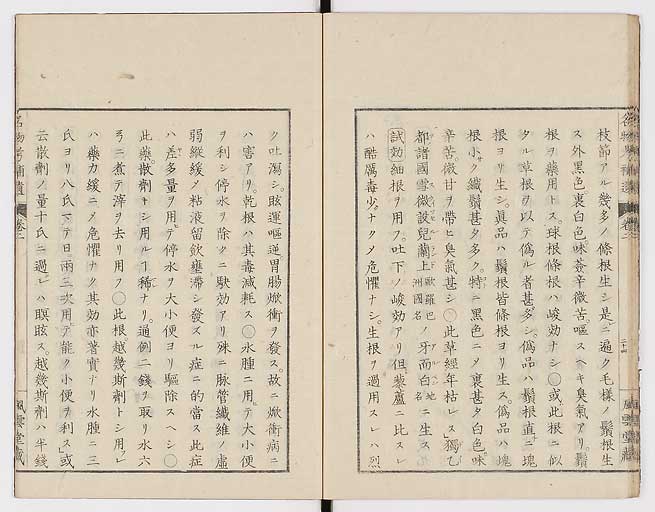 枝節アル幾多ノ條根生シ是ニ遍ク毛樣ノ鬚根生
ス外黑色裏白色味薟辛微苦嘔スヘキ臭氣アリ。鬚
根ヲ藥用トス。球根條根ハ峻効ナシ○或此根ニ似
タル草根ヲ以テ僞ル者甚多シ。僞品ハ鬚根直ニ塊
根ヨリ生シ。眞品ハ鬚根皆條根ヨリ生ス。僞品ハ塊
根小サク纎鬚甚タ多ク。特ニ黑色ニメ裏甚タ白色。味
辛苦。微甘ヲ帶ヒ臭氣甚シ○此草經年枯レス」獨乙
都諸國雪微設兒蘭上歐羅巴洲國名ノ牙而白地名ニ生ス
試効細根ヲ用フ。吐下ノ峻効アリ但藜蘆ニ比スレ
ハ酷厲毒少ナクメ危懼ナシ。生根ヲ過用スレハ烈
風雲堂藏
名物考補遺 卷二
ク吐瀉シ。眩運嘔逆胃腸焮衝ヲ發ス。故ニ焮衝病ニ
ハ害アリ。乾根ハ其毒減耗ス○水腫ニ用テ大小便
ヲ利シ停水ヲ除クニ駃効アリ殊ニ脉管纎維ノ虛
弱縱緩ノ粘液留飮壅滯シ發スル症ニ的當ス此症
ハ差多量ヲ用テ停水ヲ大小便ヨリ驅除スヘシ○
此藥散劑トシ用ルヿ稀ナリ。通例二錢ヲ取リ水六
弓ニ煮テ滓ヲ去リ用フ○此根。越幾斯劑トシ用レ
ハ藥力緩ニメ危懼ナク其効亦著實ナリ水腫ニ三
氏ヨリ八氏マテ日ニ兩三次用テ能ク小便ヲ利ス」或
云散劑ノ量十氏ニ過レハ瞑眩ス。越幾斯劑ハ半錢
風雲堂藏